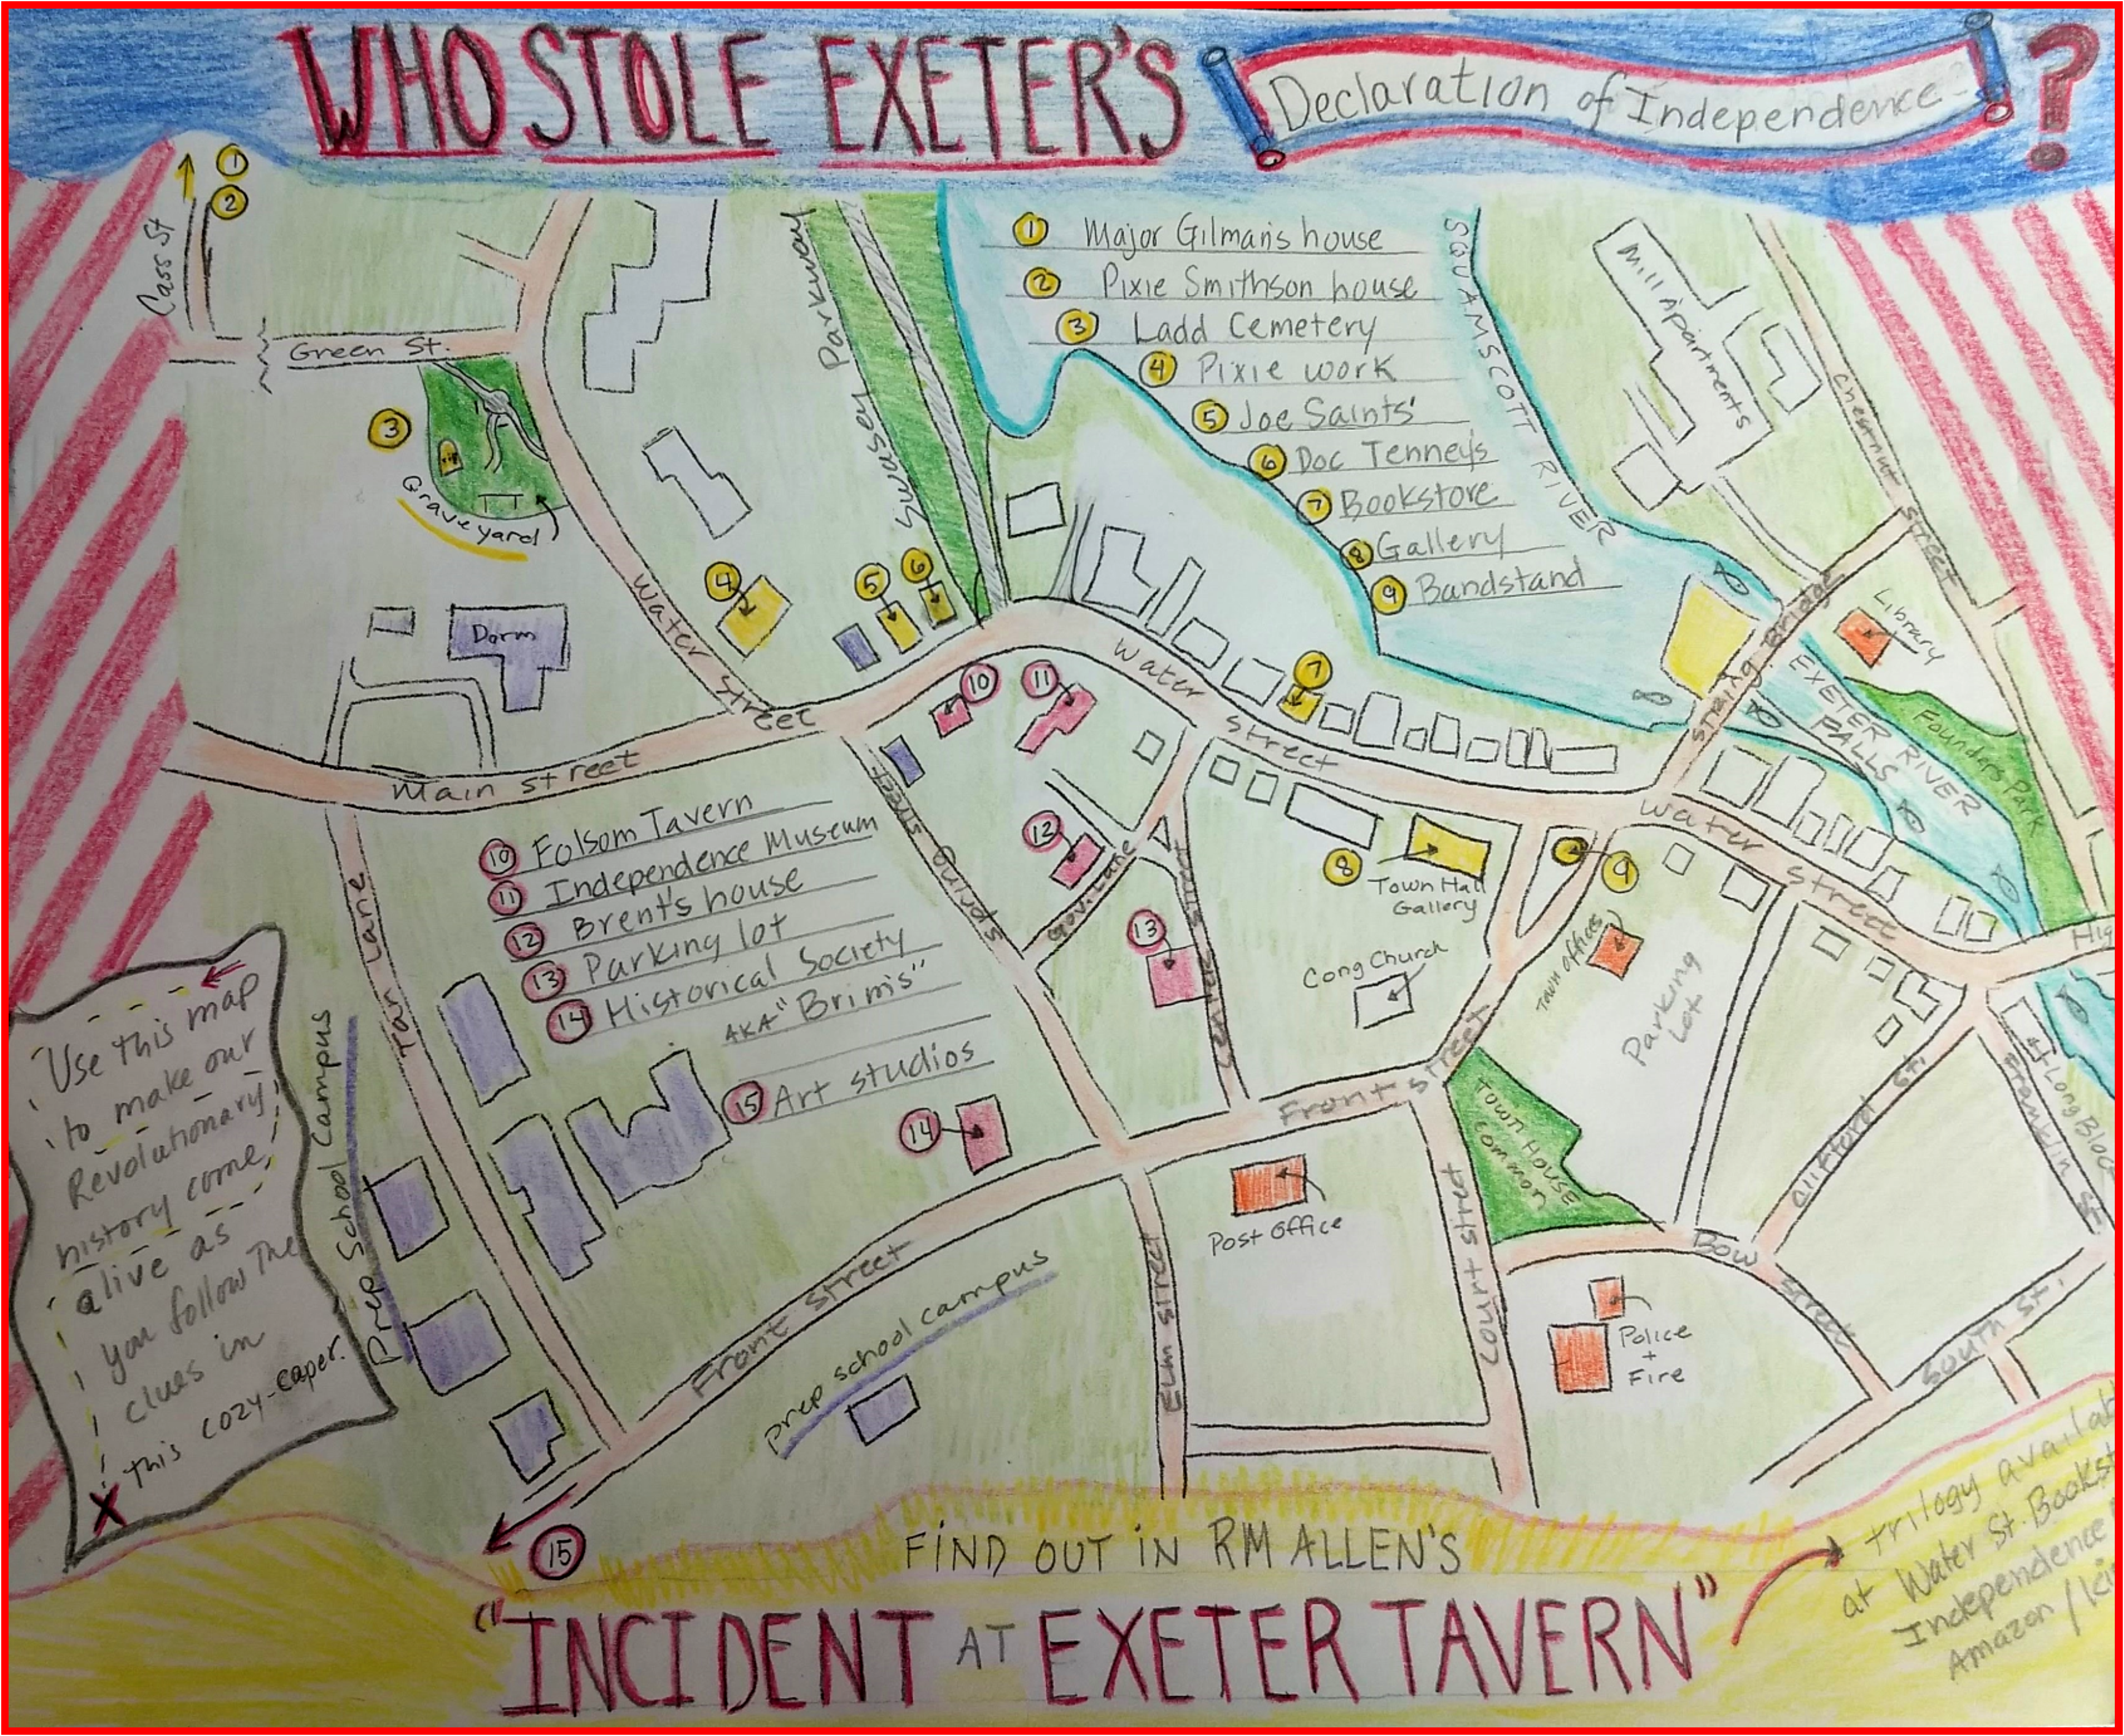 WHO STOLE EXETER'S
Declaration of Independence
?
1
2
Cass St
Green St.
3
Graveyard
RIP
Swasey Parkway
1 Major Gilman's house
2 Pixie Smithson house
3 Ladd Cemetery
4 Pixie work
5 Joe Saints'
6 Doc Tenney's
7 Bookstore
8 Gallery
9 Bandstand
SQUAMSCOTT RIVER
Mill Apartments
Chestnut Street
String Bridge
Library
EXETER RIVER
FALLS
Founders Park
Dorm
Water Street
4
5
6
10
11
Water Street
7
Main Street
Spring Street
12
Gov. Lane
13
Centre Street
8
Town Hall
Gallery
9
Water Street
Town Offices
Parking
Lot
Cong Church
Hig
10 Folsom Tavern
11 Independence Museum
12 Brent's house
13 Parking lot
14 Historical Society
AKA "Brim's"
15 Art studios
14
Tan Lane
Prep School Campus
Use this map
to make our
Revolutionary
history come
alive as
you follow The
clues in
this cozy-caper.
X
Front Street
Front Street
Town House
Common
Clifford St.
Franklin St.
Long Bloc
Post Office
Elm Street
Court Street
Bow Street
Police
+
Fire
South St.
prep school campus
15
FIND OUT IN RM ALLEN'S
"INCIDENT AT EXETER TAVERN"
trilogy availab
at Water St. Bookst
Independence
Amazon / Kin